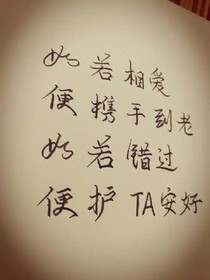 如若相爱
便携手到老
如若错过
便护TA安好